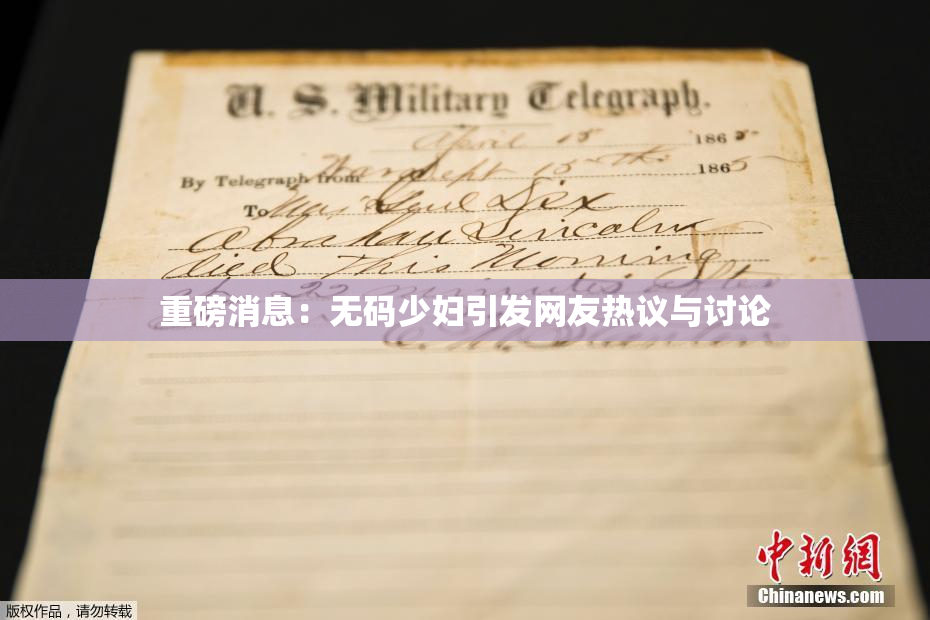 U. S. Military Telegraph.
April 15 1865
By Telegraph from War Dept 15th 1865
To Maj Genl Dix
Abraham Lincoln
died This Morning
at 22 minutes after
重磅消息：无码少妇引发网友热议与讨论
E. M. Stanton
中新网
Chinanews.com
版权作品，请勿转载